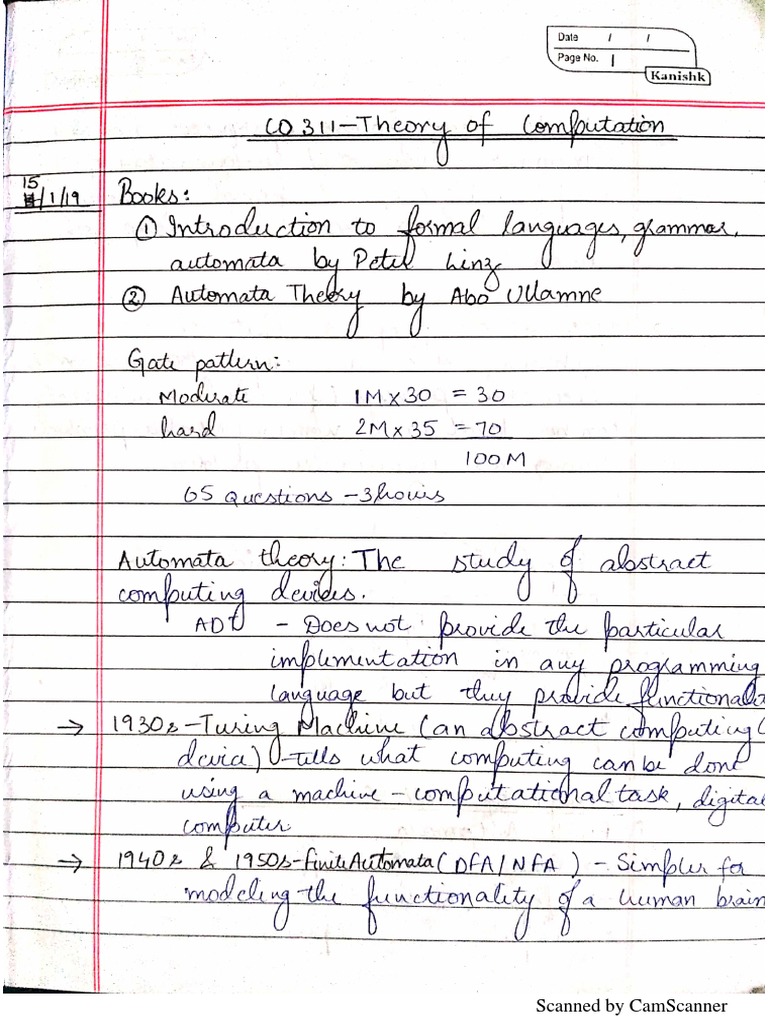 Date / /
Page No. 1
Kanishk
CO311-Theory of Computation
15
/1/19
Books:
① Introduction to formal languages, grammar,
automata by Peter Linz
② Automata Theory by Abo Ullamne
Gate pattern:
Moderate 1M x 30 = 30
hard 2M x 35 = 70
100M
65 Questions - 3hours
Automata theory: The study of abstract
computing devices.
ADT - Does not provide the particular
implementation in any programming
language but they provide functionali
→ 1930s - Turing Machine (an abstract computing
device) - tells what computing can be done
using a machine - computational task, digital
computer
→ 1940s & 1950s - finite Automata (DFA/NFA) - Simpler for
modeling the functionality of a human brain
Scanned by CamScanner